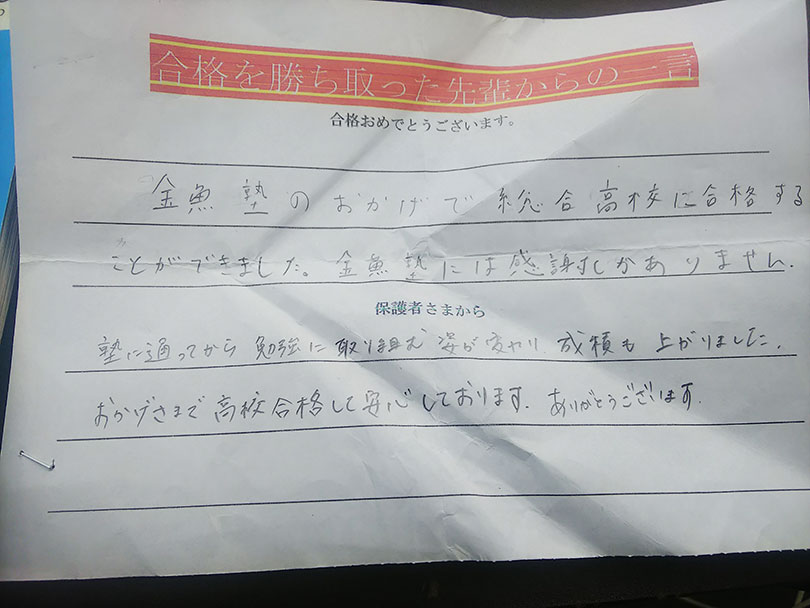 合格を勝ち取った先輩からの一言
合格おめでとうございます。
金魚塾のおかげで総合高校に合格する
ことができました。金魚塾には感謝しかありません.
保護者さまから
塾に通ってから勉強に取り組む姿が変わり成績も上がりました.
おかげさまで高校合格して安心しております.ありがとうございます.